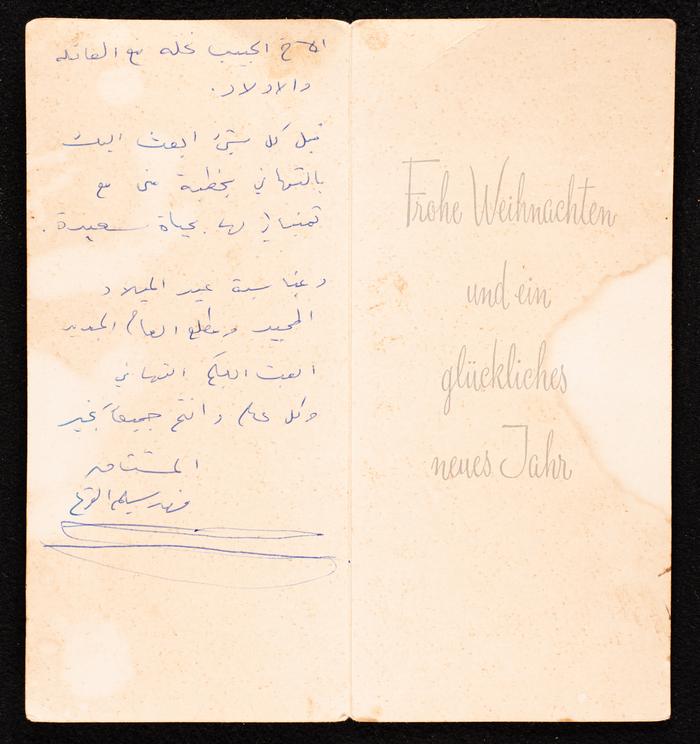 الاخ الحبيب نخله مع العائله
والاولاد.
قبل كل شيئ ابعث اليك
بالتهاني بخطبة منى مع
تمنياتي لها بحياة سعيدة.
وبمناسبة عيد الميلاد
المجيد ومطلع العام الجديد
ابعث اليكم التهاني
وكل عام وانتم جميعاً بخير
المشتاق
سليم
Frohe Weihnachten
und ein
glückliches
neues Jahr